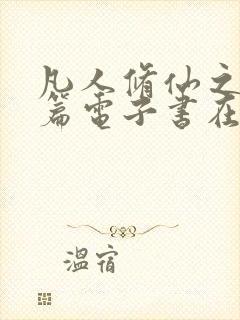 凡人修仙之
篇电子书在
温宿